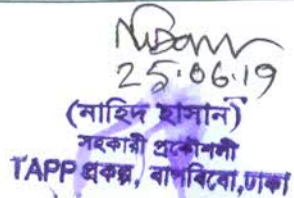 25.06.19
(নাহিদ হাসান)
সহকারী প্রকৌশলী
TAPP প্রকল্প, বাপবিবো, ঢাকা